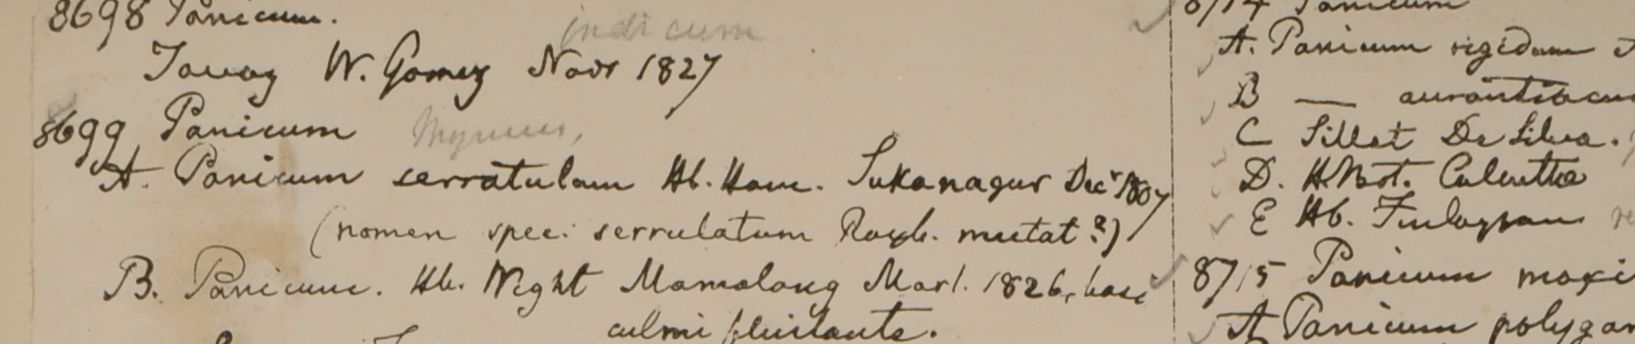 8698 Panicum.
indicum
Tavoy W. Gomez Novr 1827
8699 Panicum
A. Panicum serratulam Hb. Ham. Sukanagur Decr 1807
(nomen spec. serrulatum Roxb. mutat?)
B. Panicum. Hb. Wight Mamalang Mart. 1826, basi
culmi fluitante.
8714 Panicum
A. Panicum rigidum
B — aurantiacu
C Sillet De Silva.
D. H. Bot. Calcutta
E Hb. Finlayson
8715 Panicum maxi
A Panicum polygam